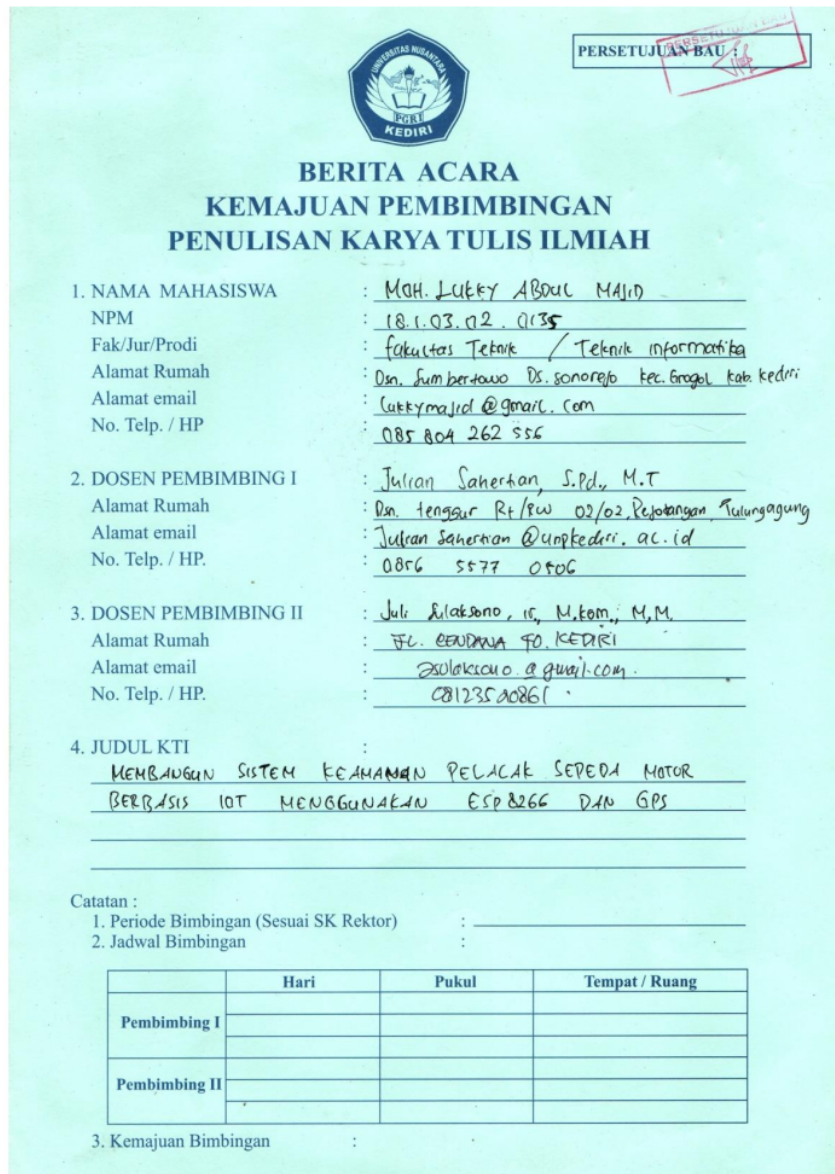 UNIVERSITAS NUSANTARA
PGRI
KEDIRI
PERSETUJUAN BAU :
PERSETUJUAN BAU
BERITA ACARA
KEMAJUAN PEMBIMBINGAN
PENULISAN KARYA TULIS ILMIAH
1. NAMA MAHASISWA : MOH. LUKKY ABDUL MAJID
NPM : 18.1.03.02.0135
Fak/Jur/Prodi : fakultas Teknik / Teknik informatika
Alamat Rumah : Dsn. Sumbertowo Ds. sonorejo kec. Grogol kab. kediri
Alamat email : lukkymajid@gmail.com
No. Telp. / HP : 085 804 262 556
2. DOSEN PEMBIMBING I : Julian Sahertian, S.Pd., M.T
Alamat Rumah : Dsn. tenggur Rt/RW 02/02, Rejotangan, Tulungagung
Alamat email : Juliansahertian@unpkediri.ac.id
No. Telp. / HP. : 0856 5577 0506
3. DOSEN PEMBIMBING II : Juli Sulaksono, M.kom., M.M.
Alamat Rumah : JL. CENDANA KEDIRI
Alamat email : Jsulaksono.@gmail.com.
No. Telp. / HP. :
4. JUDUL KTI :
MEMBANGUN SISTEM KEAMANAN PELACAK SEPEDA MOTOR
BERBASIS IOT MENGGUNAKAN ESP8266 DAN GPS
Catatan :
1. Periode Bimbingan (Sesuai SK Rektor) :
2. Jadwal Bimbingan :
Hari Pukul Tempat / Ruang
Pembimbing I
Pembimbing II
3. Kemajuan Bimbingan :